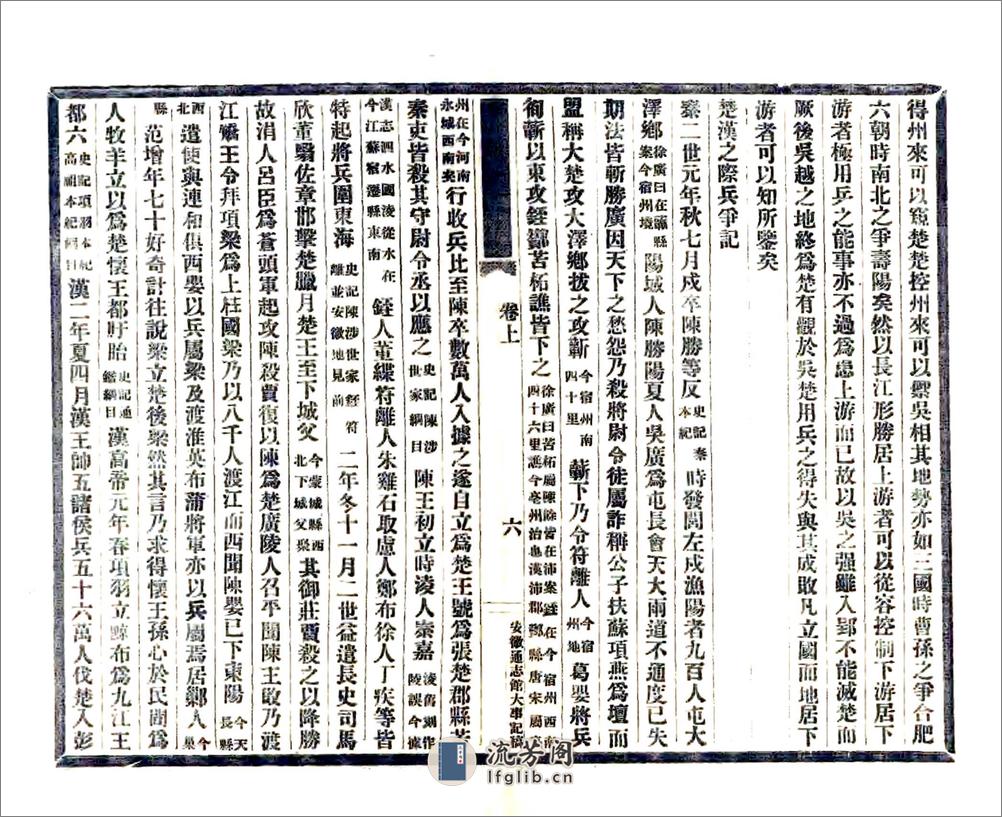 得州來可以窺楚楚控州來可以禦吳相其地勢亦如三國時曹孫之爭合肥
六朝時南北之爭壽陽矣然以長江形勝居上游者可以從容控制下游居下
游者極用兵之能事亦不過爲慮上游而已故以吳之强雖入郢不能滅楚而
厥後吳越之地終爲楚有觀於吳楚用兵之得失與其成敗凡立國而地居下
游者可以知所鑒矣
楚漢之際兵爭記
秦二世元年秋七月戍卒陳勝等反史記秦本紀時發閭左戍漁陽者九百人屯大
澤鄉徐廣曰在沛蘄縣案今宿州境陽城人陳勝陽夏人吳廣爲屯長會天大雨道不通度已失
期法皆斬勝廣因天下之愁怨乃殺將尉令徒屬詐稱公子扶蘇項燕爲壇而
盟稱大楚攻大澤鄉拔之攻蘄今宿州南四十里蘄下乃令符離人今宿州地葛嬰將兵
徇蘄以東攻銍酇苦柘譙皆下之徐廣曰苦柘屬陳餘皆在沛案銍在今宿州西南四十六里譙今亳州治也漢沛郡酇縣唐宋屬亳
卷上
六
安徽通志館大事記稿
州在今河南永城西南矣行收兵比至陳卒數萬人入據之遂自立爲楚王號爲張楚郡縣苦
秦吏皆殺其守尉令丞以應之史記陳涉世家綱目陳王初立時淩人秦嘉淩舊刻作陵誤今據
漢志泗水國淩從水在今江蘇宿遷縣東南銍人董緤符離人朱雞石取慮人鄭布徐人丁疾等皆
特起將兵圍東海史記陳涉世家銍符離並安徽地見前二年冬十一月二世益遣長史司馬
欣董翳佐章邯擊楚臘月楚王至下城父今蒙城縣西北下城父聚其御莊賈殺之以降勝
故涓人呂臣爲蒼頭軍起攻陳殺賈復以陳爲楚廣陵人召平聞陳王敗乃渡
江矯王令拜項梁爲上柱國梁乃以八千人渡江而西聞陳嬰已下東陽今天長縣
西北遣使與連和俱西嬰以兵屬梁及渡淮英布蒲將軍亦以兵屬焉居鄛人今巢
縣范增年七十好奇計往說梁立楚後梁然其言乃求得懷王孫心於民間爲
人牧羊立以爲楚懷王都盱眙史記通鑑綱目漢高帝元年春項羽立黥布爲九江王
都六史記項羽本紀高祖本紀綱目漢二年夏四月漢王帥五諸侯兵五十六萬人伐楚入彭
流芳阁
lfglib.cn